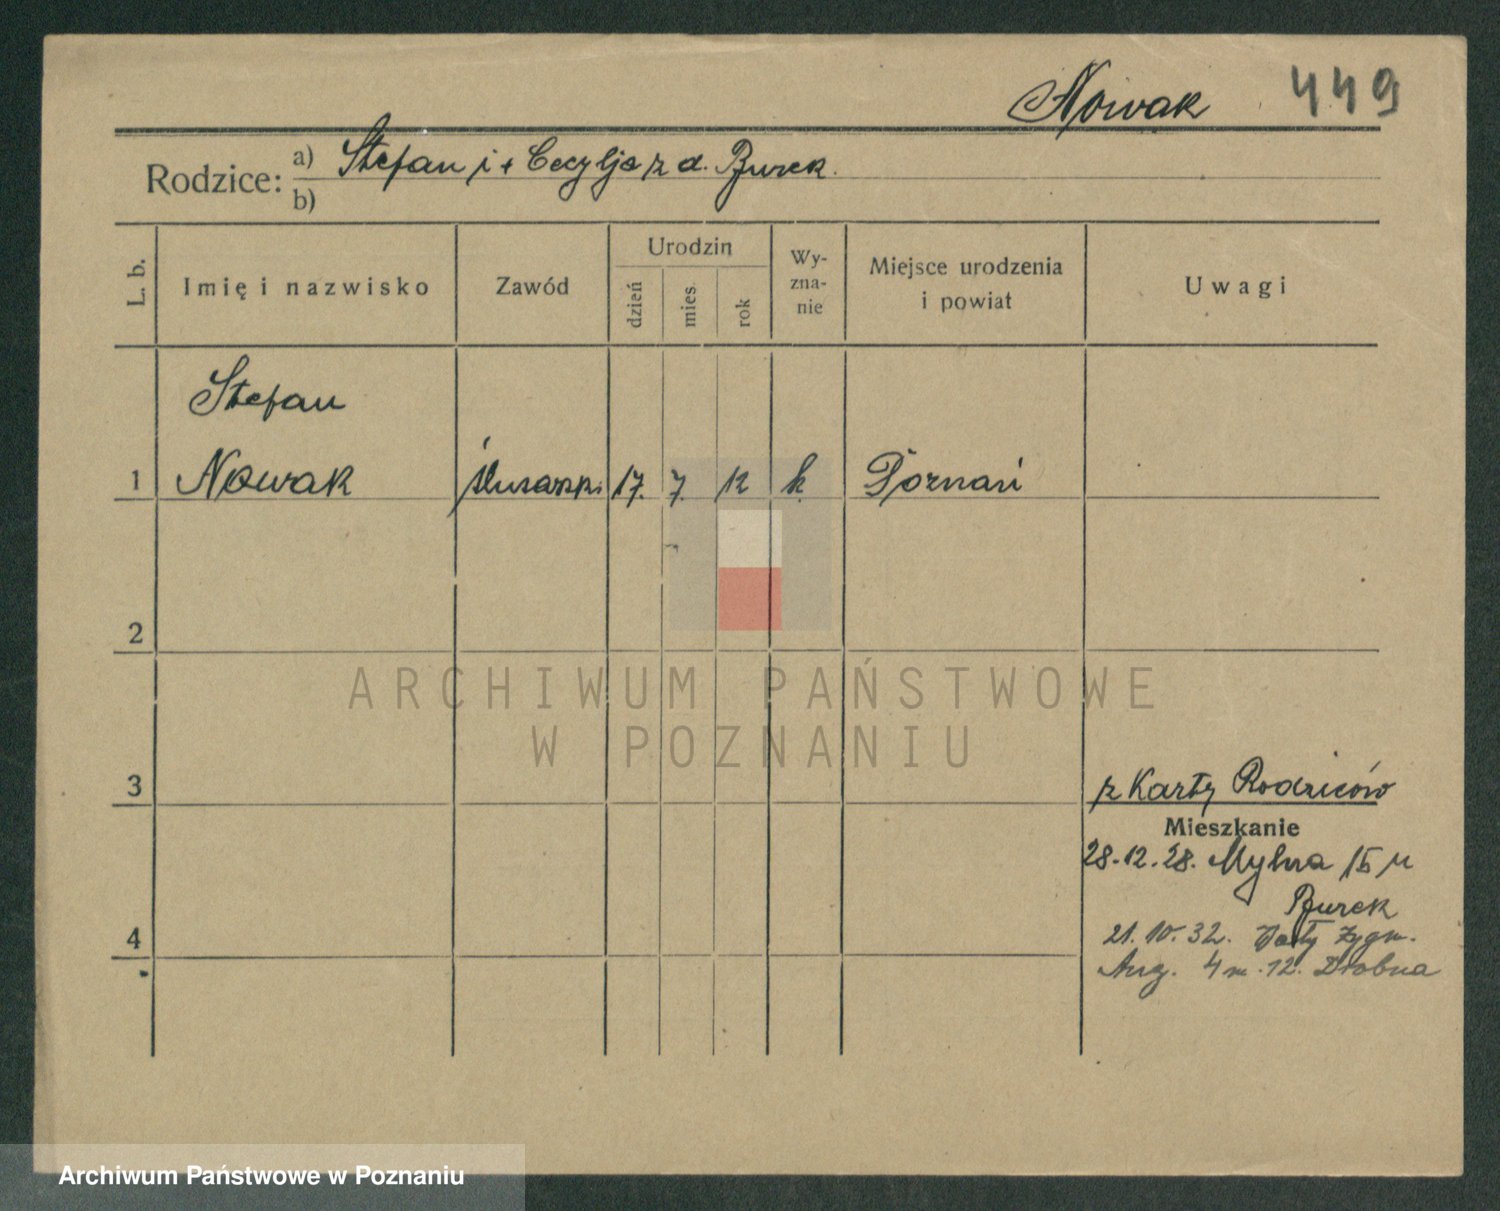 Nowak 449
Rodzice: a) Stefan i + Cecylja z d. Burek.
b)
L. b.
Imię i nazwisko
Zawód
Urodzin
dzień
mies.
rok
Wy-
zna-
nie
Miejsce urodzenia
i powiat
Uwagi
Stefan
1 Nowak 17. 7. 12 k. Poznań
2
ARCHIWUM PAŃSTWOWE
W POZNANIU
3
z Karty Rodziców
Mieszkanie
28.12.28. Mylna 15 u
Burek
4
21.10.32. Zygm.
Aug. 4 m. 12. Drobna
Archiwum Państwowe w Poznaniu